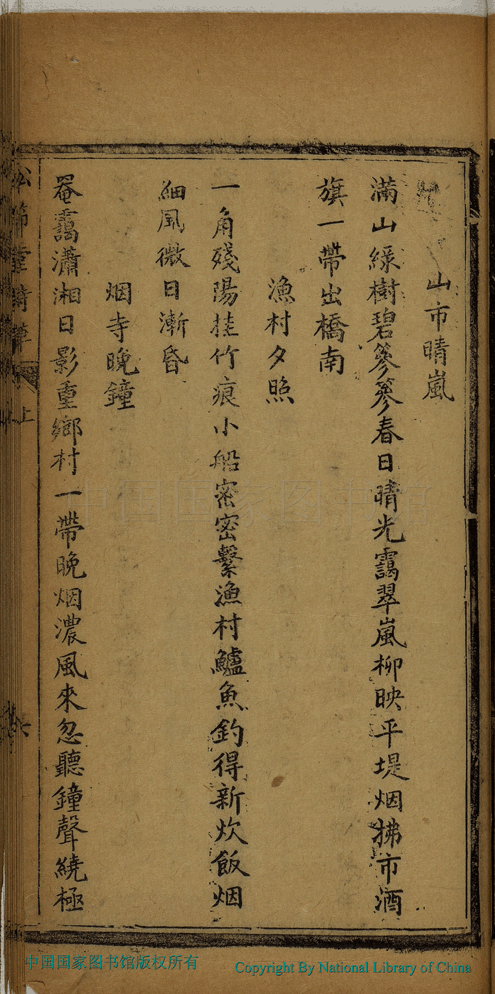 山市晴嵐
滿山綠樹碧篸篸春日晴光靄翠嵐柳映平堤烟拂市酒
旗一帶出橋南
漁村夕照
一角殘陽挂竹痕小船密密繫漁村鱸魚釣得新炊飯烟
細風微日漸昏
烟寺晚鐘
罨靄瀟湘日影重鄉村一帶晚烟濃風來忽聽鐘聲繞極
上
六
中国国家图书馆
中国国家图书馆版权所有
Copyright By National Library of China